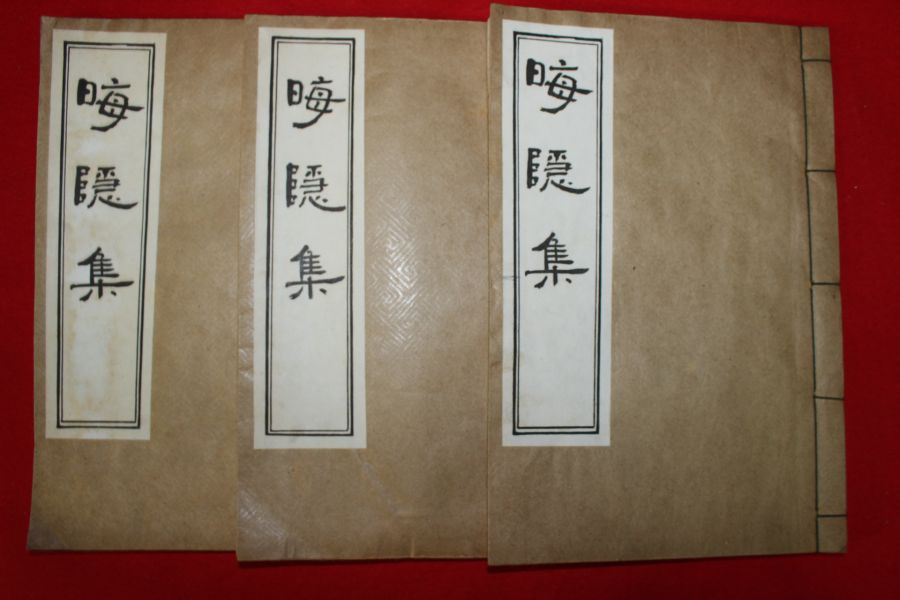 晦隱集
晦隱集
晦隱集